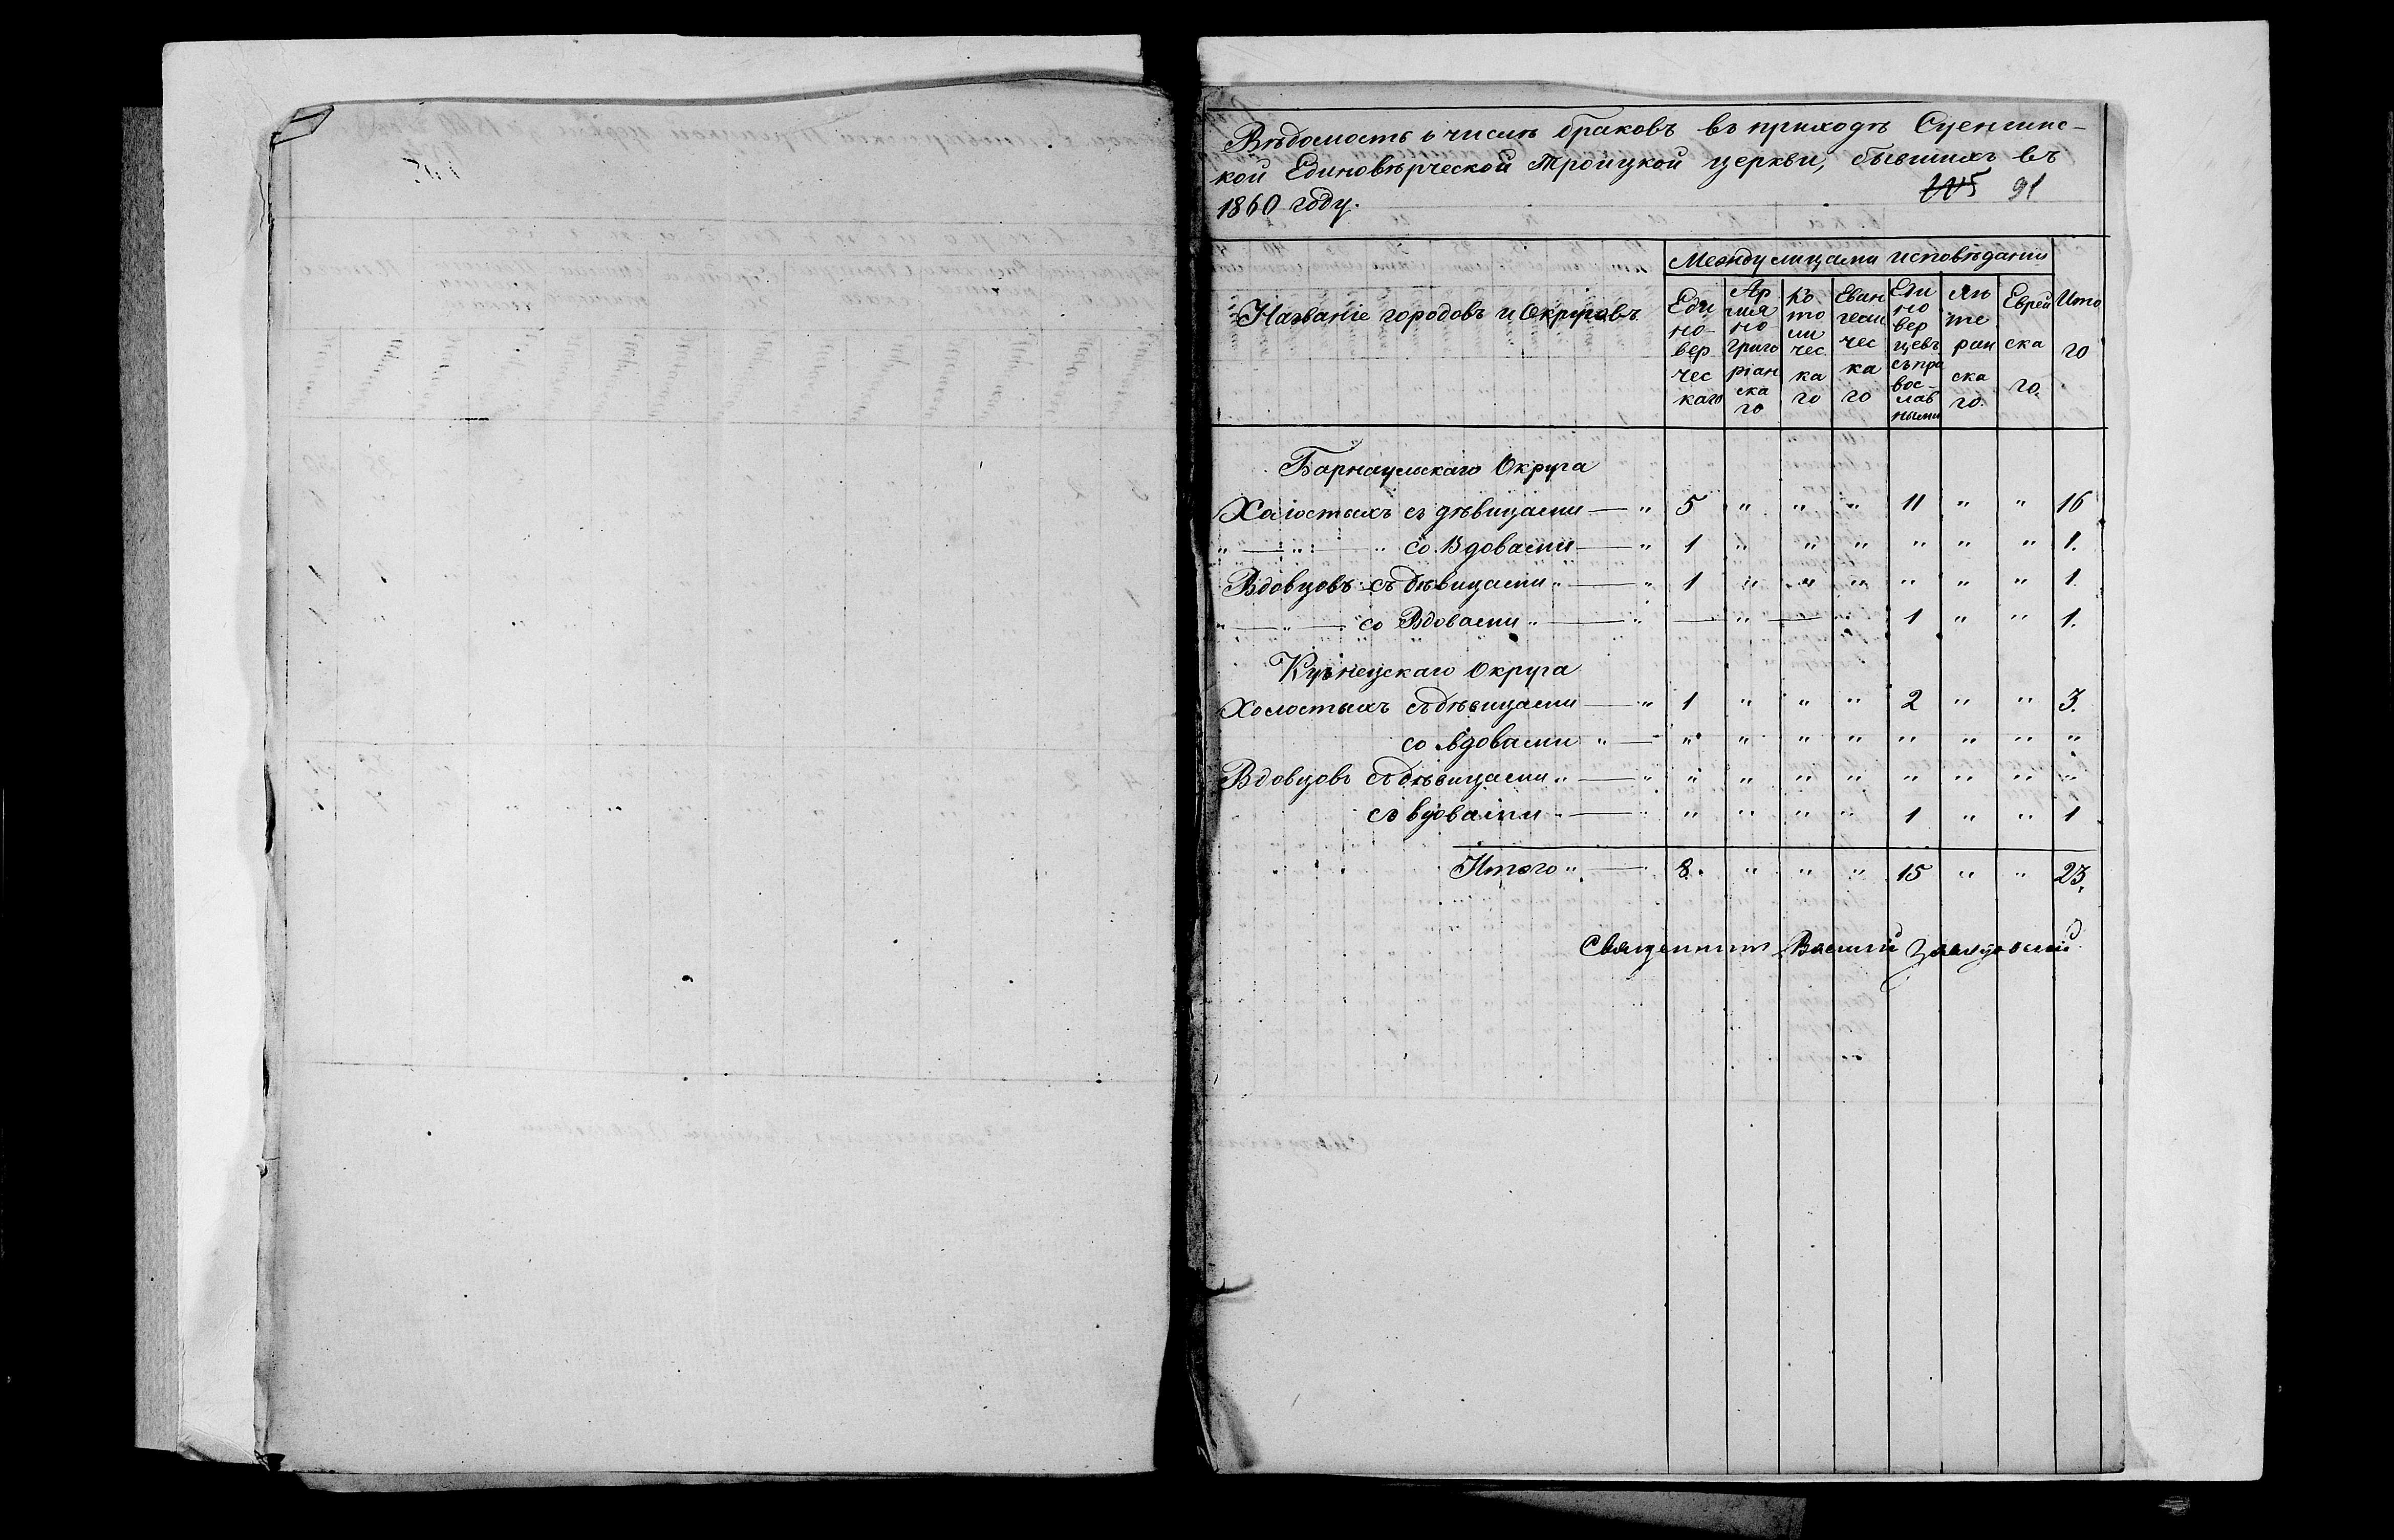 Вѣдомость о числѣ браковъ въ приходѣ Суенгинс-
кой Единовѣрческой Троицкой церкви, бывшихъ въ
1860 году. 91
Между лицами исповѣданій
Названіе городовъ и Округовъ Еди но- вер чес каго Ар мяно Григо ріан ска го Ка то ли чес ка го Еван гели чес ка го Еди но вер цевъ съ пра вос- лав ными Лю те ран ска го. Еврей ска го. Ито го
Барнаульскаго Округа
Холостыхъ съ дѣвицами — " 5 " " " 11 " " 16
" — " — " со Вдовами — " 1 " " " " " " 1.
Вдовцовъ съ дѣвицами " — " 1 " " " " " " 1.
" — " — со Вдовами " — " — " — " 1 " " 1.
Кузнецкаго Округа
Холостыхъ съ дѣвицами — " 1 " " " 2 " " 3.
со вдовами " — " " " " " " " "
Вдовцовъ съ дѣвицами " — " " " " " " " " "
съ вдовами " — " " " " " 1 " " 1
Итого " — 8. " " " 15 " " 23.
Священникъ Василій